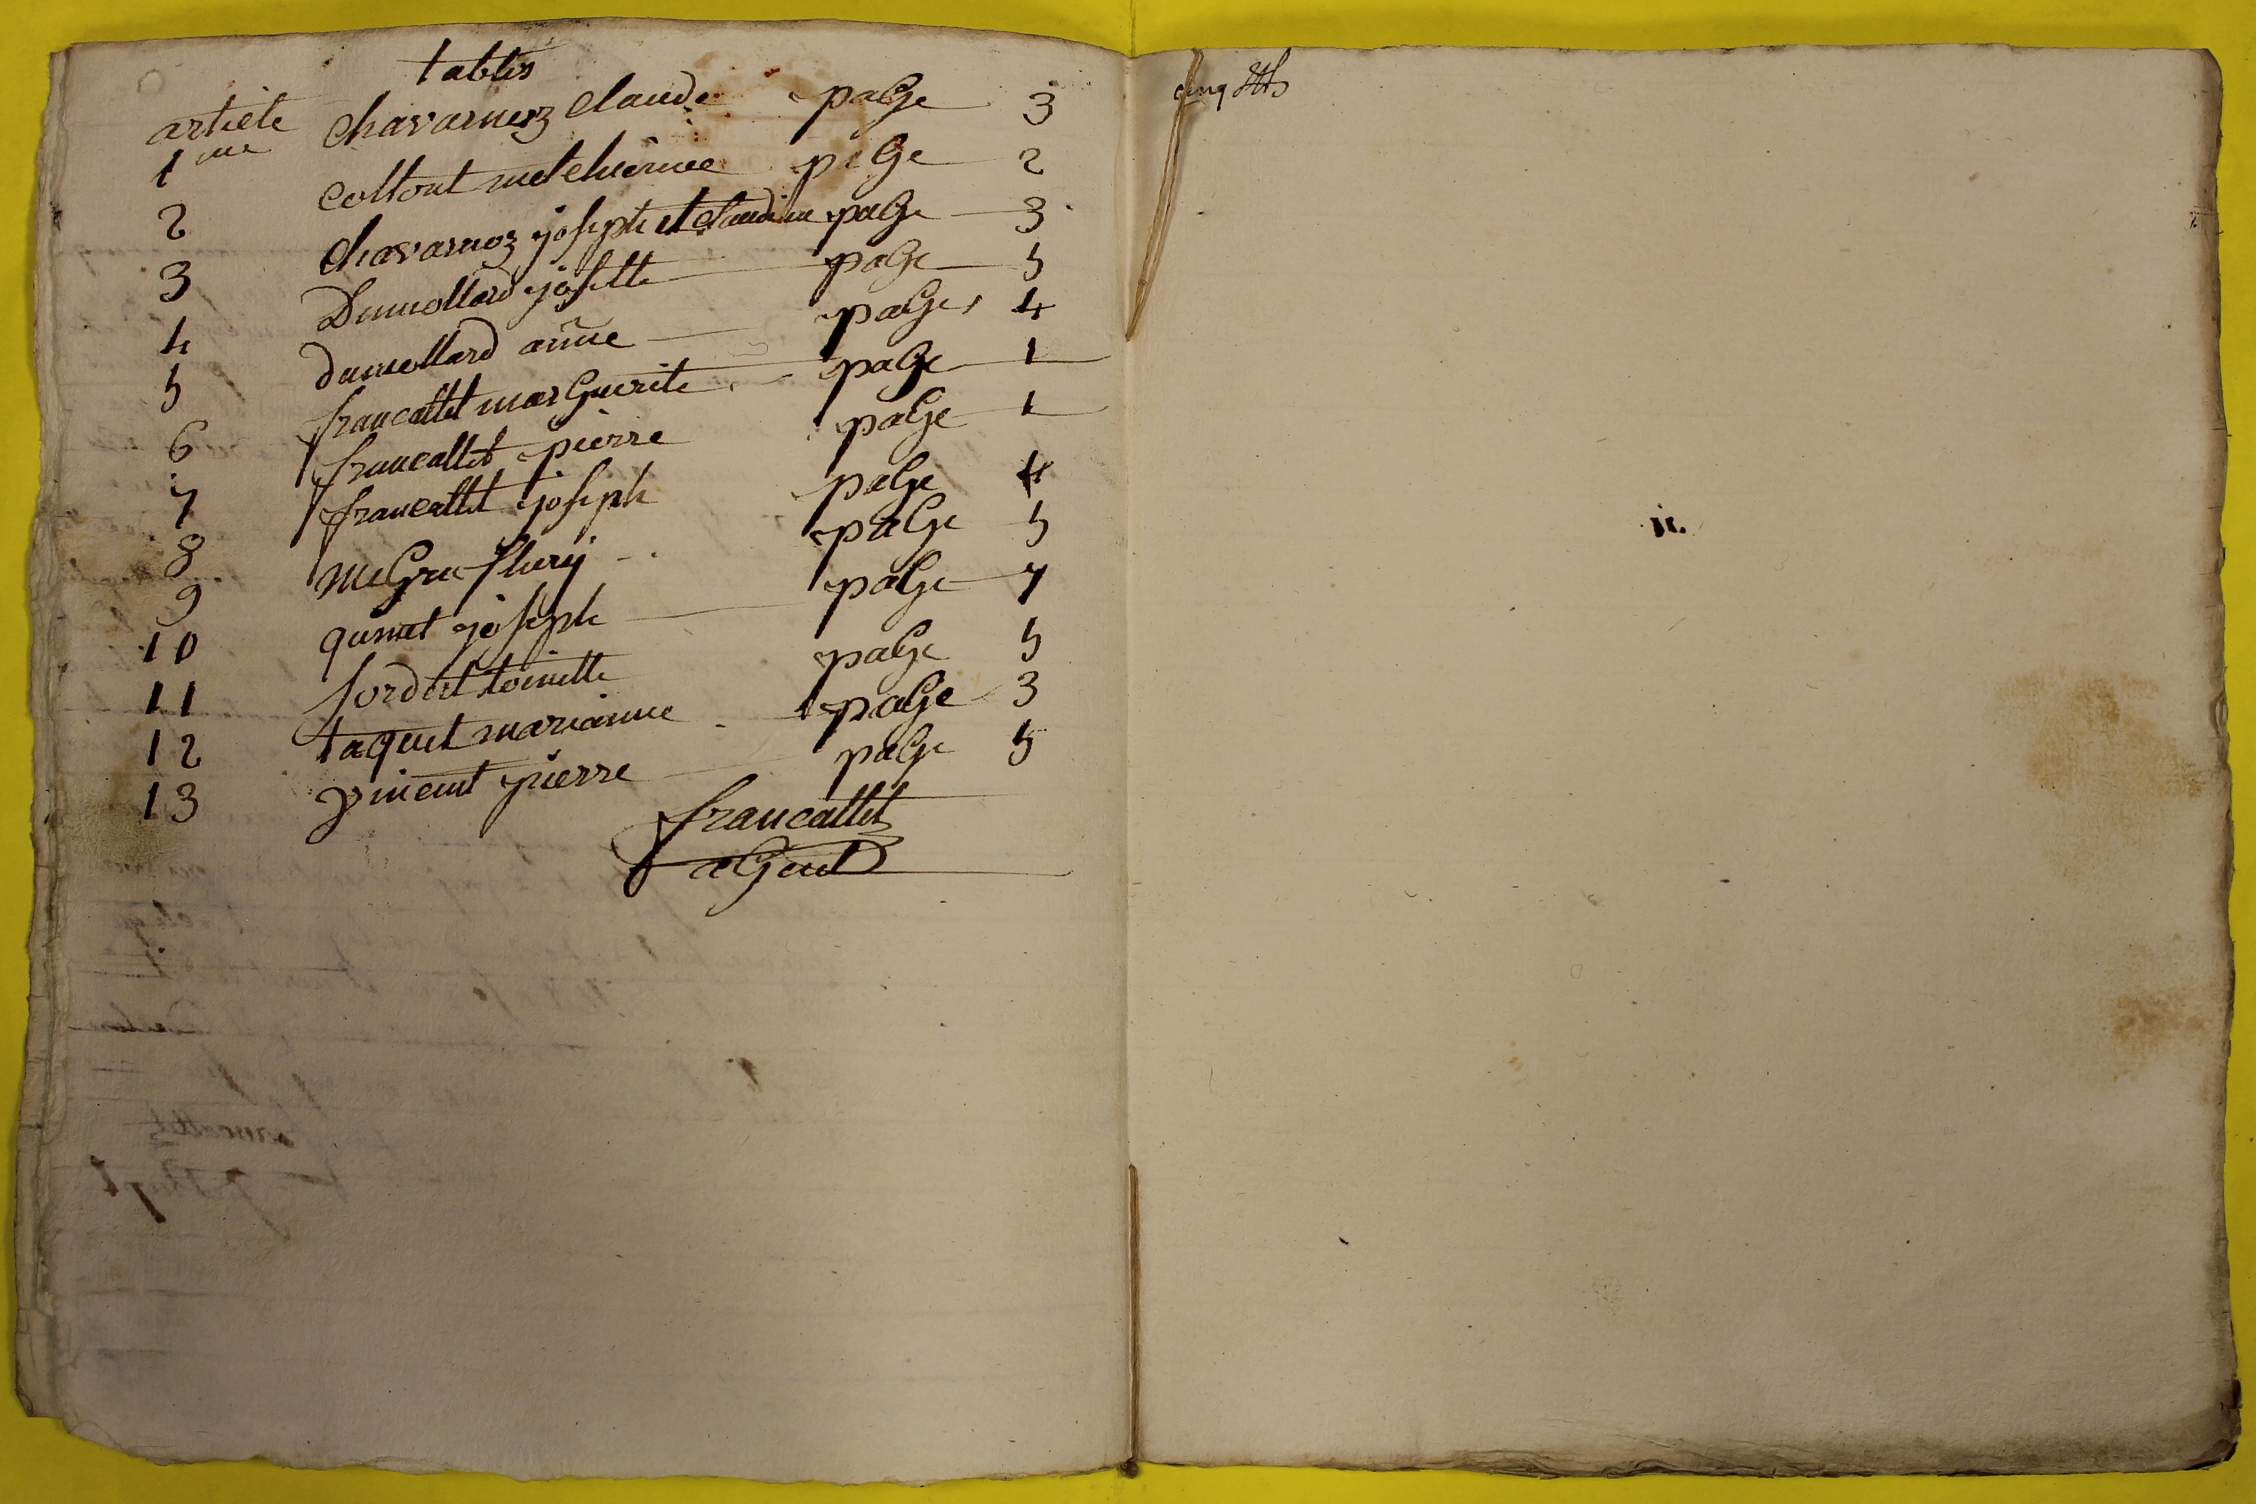 tables
article
1me chavarnoz claude page 3
2 collont melchieinne page 2
3 chavarnoz joseph et claudine page 3
4 Dumollard josette page 5
5 dumollard anne page 4
6 francallet marGuerite page 1
7 francallet pierre page 1
8 francallet joseph page 4
9 meGre fleury page 5
10 quinet joseph page 7
11 sordet toinette page 5
12 taquet marianne page 3
13 vincent pierre page 5
francallet
aGent
cinq